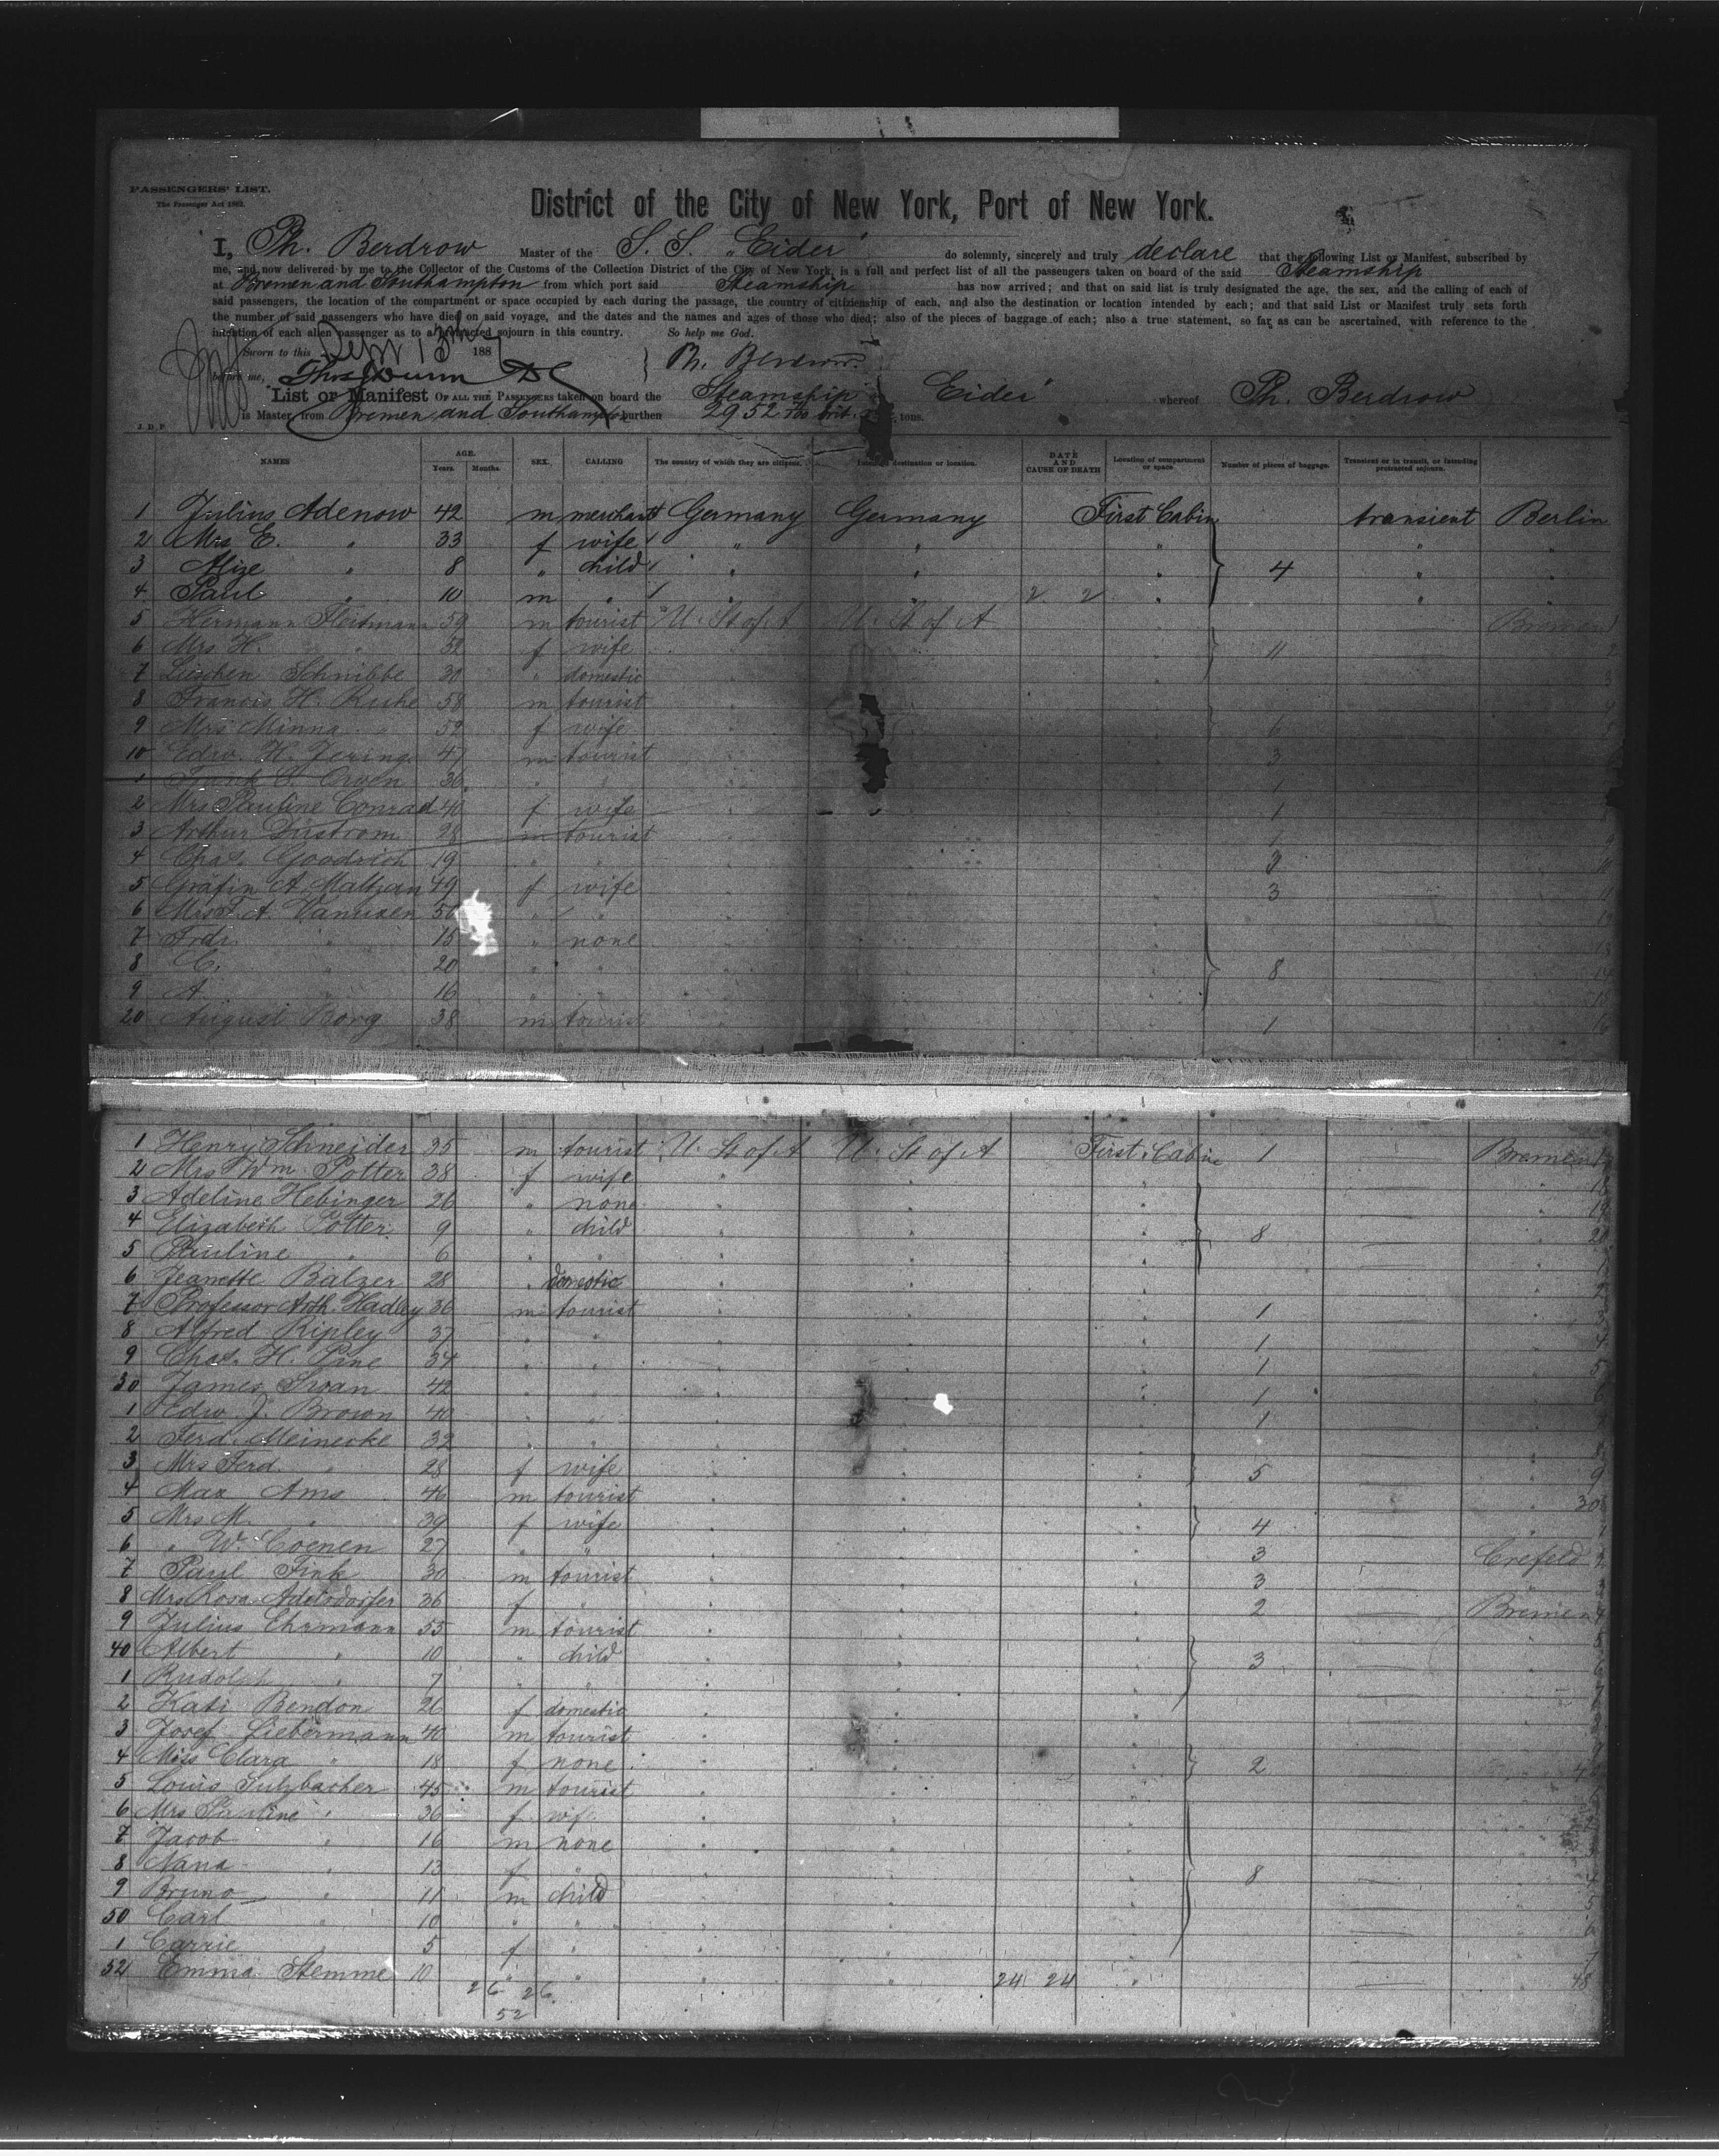 PASSENGERS' LIST.
The Passenger Act 1882.
District of the City of New York, Port of New York.
I, Ph. Berdrow Master of the S. S. "Eider" do solemnly, sincerely and truly declare that the following List or Manifest, subscribed by
me, and now delivered by me to the Collector of the Customs of the Collection District of the City of New York, is a full and perfect list of all the passengers taken on board of the said Steamship
at Bremen and Southampton from which port said Steamship has now arrived; and that on said list is truly designated the age, the sex, and the calling of each of
said passengers, the location of the compartment or space occupied by each during the passage, the country of citizenship of each, and also the destination or location intended by each; and that said List or Manifest truly sets forth
the number of said passengers who have died on said voyage, and the dates and the names and ages of those who died; also of the pieces of baggage of each; also a true statement, so far as can be ascertained, with reference to the
intention of each alien passenger as to a protracted sojourn in this country. So help me God.
Sworn to this 13th 188
before me, Ph. Berdrow
List or Manifest OF ALL THE PASSENGERS taken on board the Steamship Eider whereof Ph. Berdrow
is Master, from Bremen and Southampton burthen 2952 tons.
J. D. P.
NAMES AGE. Years. Months. SEX. CALLING The country of which they are citizens. Intended destination or location. DATE AND CAUSE OF DEATH Location of compartment or space. Number of pieces of baggage. Transient or in transit, or intending protracted sojourn.
1 Julius Adenow 42 m merchant Germany Germany First Cabin transient Berlin
2 Mrs E. " 33 f wife " " " " "
3 Alize " 8 " child " " " 4 " "
4 Paul " 10 m " " " 2 2 " " "
5 Hermann Fleitmann 59 m tourist U. St of A U. St of A Bremen 1
6 Mrs H. " 52 f wife 11 2
7 Lieschen Schnibbe 30 " domestic 3
8 Francis H. Ruhe 58 m tourist 4
9 Mrs Minna " 52 f wife 6
10 Edw. H. Jering 47 m tourist 3
1 Frank C. Owen 36 " 1
2 Mrs Pauline Conrad 40 f wife 1
3 Arthur Dirstrom 28 m tourist 1 9
4 Chas. Goodrich 19 " " 3 10
5 Gräfin A. Maltzan 49 f wife 3 11
6 Mrs A. 50 " " 12
7 Frdr. " 15 " none 13
8 C. " 20 " " 8 14
9 A " 16 " " 15
20 August Borg 38 m tourist 1 16
1 Henry Schneider 35 m tourist U. St of A U. St of A First Cabin 1 Bremen
2 Mrs Wm. Potter 38 f wife 18
3 Adeline Hebinger 26 " none 19
4 Elizabeth Potter 9 " child 8 20
5 Pauline " 6 " "
6 Jeanette Balzer 28 " domestic 2
7 Professor Arth. Hadley 36 m tourist 1 3
8 Alfred Ripley 37 " " 1 4
9 Chas. H. Pine 34 " " 1 5
30 James Swan 42 " " 1 6
1 Edw. J. Brown 40 " " 1
2 Ferd. Meinecke 32 " " 8
3 Mrs Ferd. " 28 f wife 5 9
4 Max Ams 46 m tourist 30
5 Mrs M. " 39 f wife 4 1
6 " W. Coenen 27 " " 3 Crefeld 2
7 Paul Fink 30 m tourist 3 3
8 Mrs Rosa Adelsdorfer 36 f " 2 Bremen 4
9 Julius Ehrmann 55 m tourist 5
40 Albert " 10 " child 3 6
1 Rudolph " 7 " " 7
2 Kati Bendon 26 f domestic 8
3 Josef Liebermann 40 m tourist 9
4 Miss Clara " 18 f none 2 4
5 Louis Sulzbacher 45 m tourist
6 Mrs Pauline " 36 f wife 2
7 Jacob " 16 m none 3
8 Nana " 13 f " 8 4
9 Bruno " 11 m child 5
50 Carl " 10 " " 6
1 Carrie 5 f " 7
52 Emma Stemme 10 " " 24 24 48
26 26
52